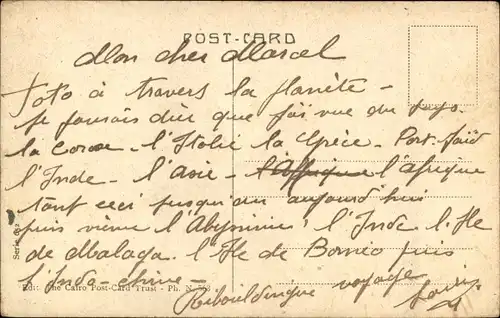 POST-CARD
Mon cher Marcel
Toto à travers la planète -
je pourrais dire que j'ai vue du pays
la Corse l'Italie la Grèce - Port-Saïd
l'Inde - l'asie - l'Affrique l'afrique
tout ceci jusqu'au aujourd'hui
puis viene l'Abyssinie, l'Inde. l'Ile
de Malaga. l'Ile de Borneo puis
l'Indo-chine -
Ribouldingue voyage
Serie
Edit. The Cairo Post-Card Trust - Ph. N.